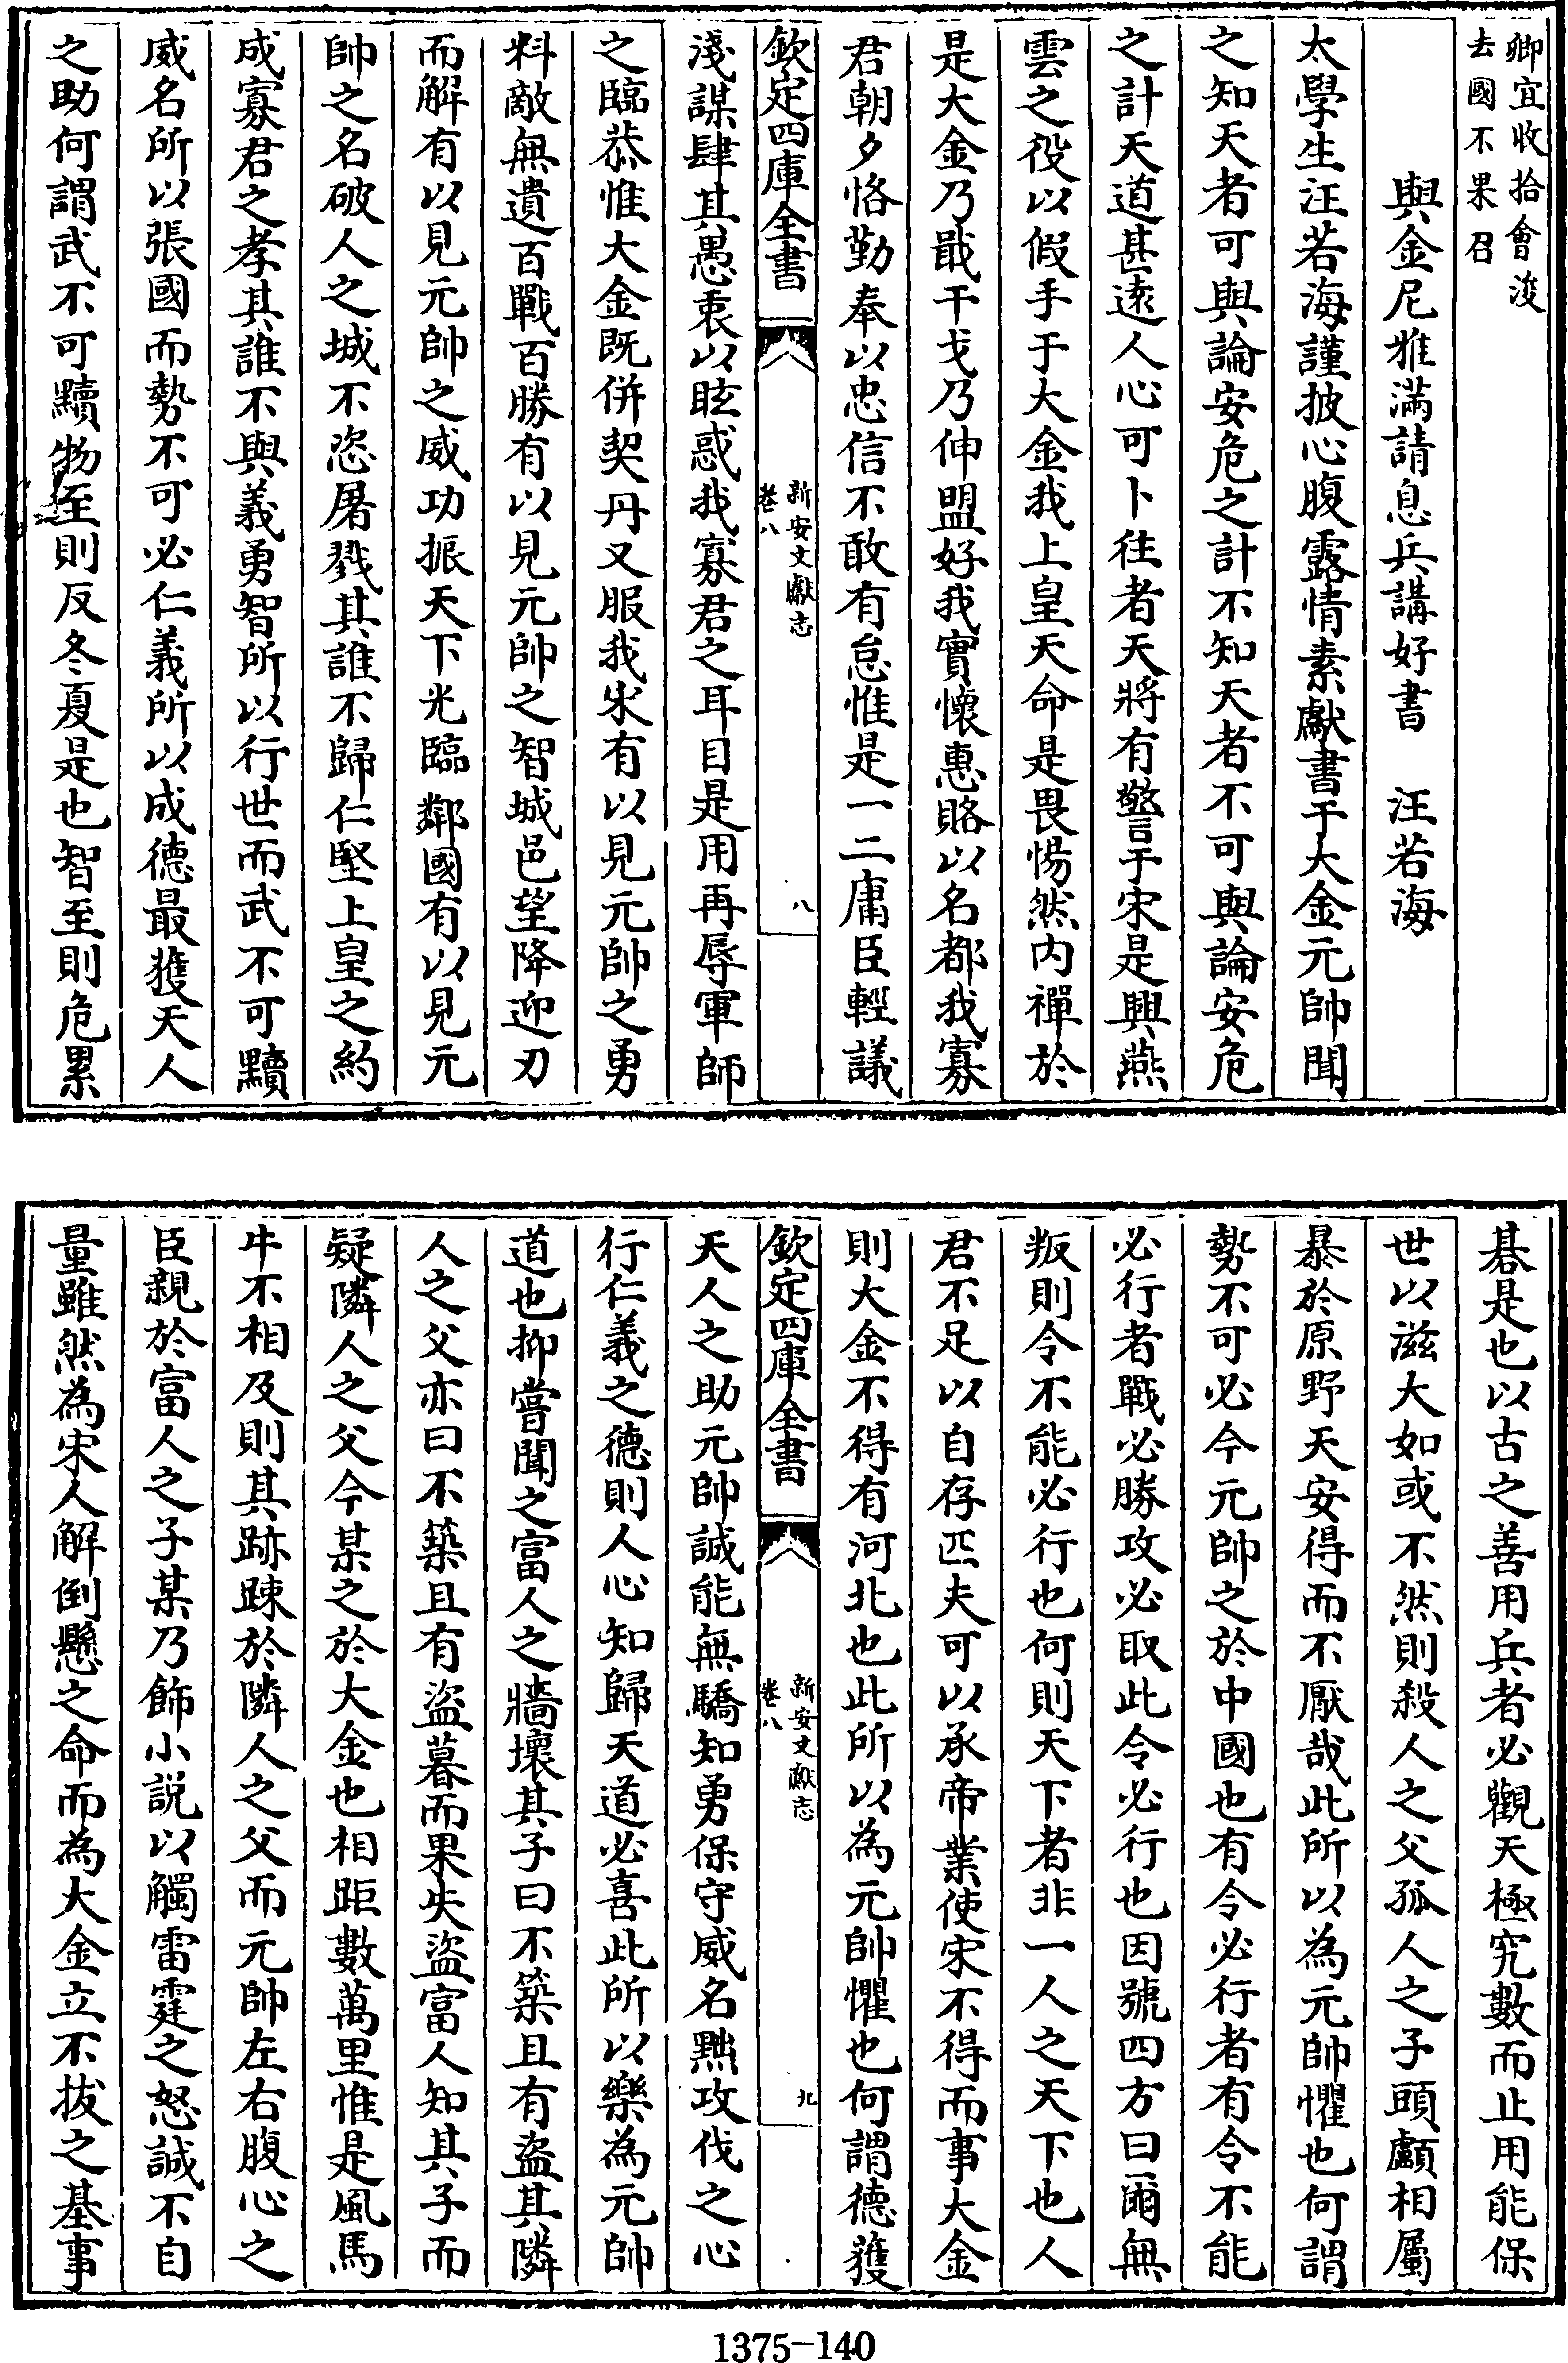 卿宜收拾會浚
去國不果召
與金尼雅滿請息兵講好書　汪若海
太學生汪若海謹披心腹露情素獻書于大金元帥聞
之知天者可與論安危之計不知天者不可與論安危
之計天道甚遠人心可卜往者天將有警于宋是興燕
雲之役以假手于大金我上皇天命是畏惕然内禪於
是大金乃戢干戈乃伸盟好我實懷惠賂以名都我寡
君朝夕恪勤奉以忠信不敢有怠惟是一二庸臣輕議
欽定四庫全書
新安文獻志
卷八
八
淺謀肆其愚衷以眩惑我寡君之耳目是用再辱軍師
之臨恭惟大金既併契丹又服我宋有以見元帥之勇
料敵無遺百戰百勝有以見元帥之智城邑望降迎刃
而解有以見元帥之威功振天下光臨鄰國有以見元
帥之名破人之城不恣屠戮其誰不歸仁堅上皇之約
成寡君之孝其誰不與義勇智所以行世而武不可黷
威名所以張國而勢不可必仁義所以成德最獲天人
之助何謂武不可黷物至則反冬夏是也智至則危累
碁是也以古之善用兵者必觀天極究數而止用能保
世以滋大如或不然則殺人之父孤人之子頭顱相屬
暴於原野天安得而不厭哉此所以為元帥懼也何謂
勢不可必今元帥之於中國也有令必行者有令不能
必行者戰必勝攻必取此令必行也因號四方曰爾無
叛則令不能必行也何則天下者非一人之天下也人
君不足以自存匹夫可以承帝業使宋不得而事大金
則大金不得有河北也此所以為元帥懼也何謂德獲
欽定四庫全書
新安文獻志
卷八
九
天人之助元帥誠能無驕知勇保守威名黜攻伐之心
行仁義之德則人心知歸天道必喜此所以樂為元帥
道也抑嘗聞之富人之牆壞其子曰不築且有盜其隣
人之父亦曰不築且有盜暮而果失盜富人知其子而
疑隣人之父今某之於大金也相距數萬里惟是風馬
牛不相及則其跡踈於隣人之父而元帥左右腹心之
臣親於富人之子某乃飾小説以觸雷霆之怒誠不自
量雖然為宋人解倒懸之命而為大金立不拔之基事
1375-140